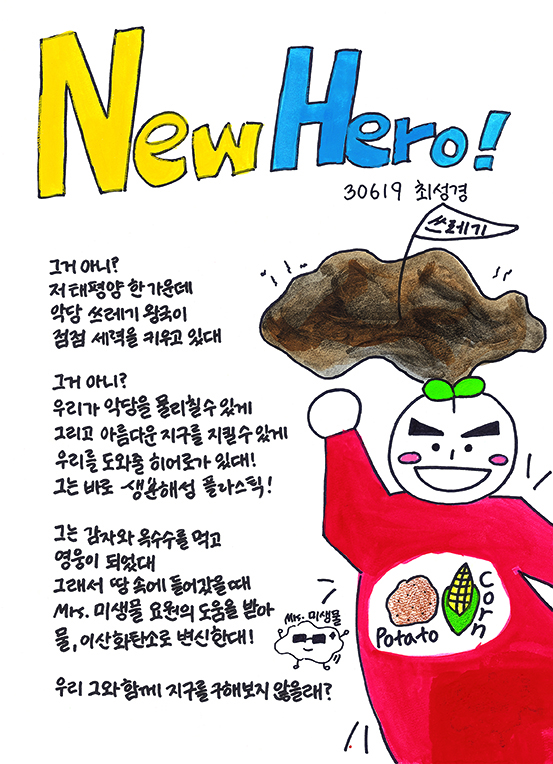 New Hero!
30619 최성경
쓰레기
그거 아니?
저 태평양 한 가운데
악당 쓰레기 왕국이
점점 세력을 키우고 있대
그거 아니?
우리가 악당을 물리칠 수 있게
그리고 아름다운 지구를 지킬 수 있게
우리를 도와줄 히어로가 있대!
그는 바로 생분해성 플라스틱!
그는 감자와 옥수수를 먹고
영웅이 되었대
그래서 땅 속에 들어갔을 때
Mrs. 미생물 요원의 도움을 받아
물, 이산화탄소로 변신한대!
우리 그와 함께 지구를 구해보지 않을래?
Mrs. 미생물
Potato
Corn